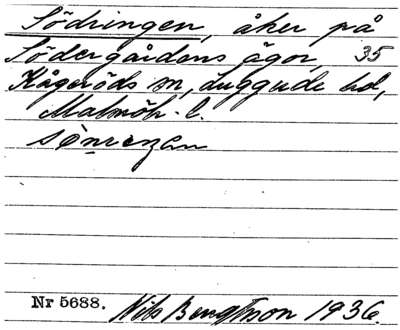 Södringen, åker på
Södergårdens ägor, 35
Kågeröds sn, Luggude hd,
Malmöh. l.
Nr 5688. Nils Bengtsson 1936.